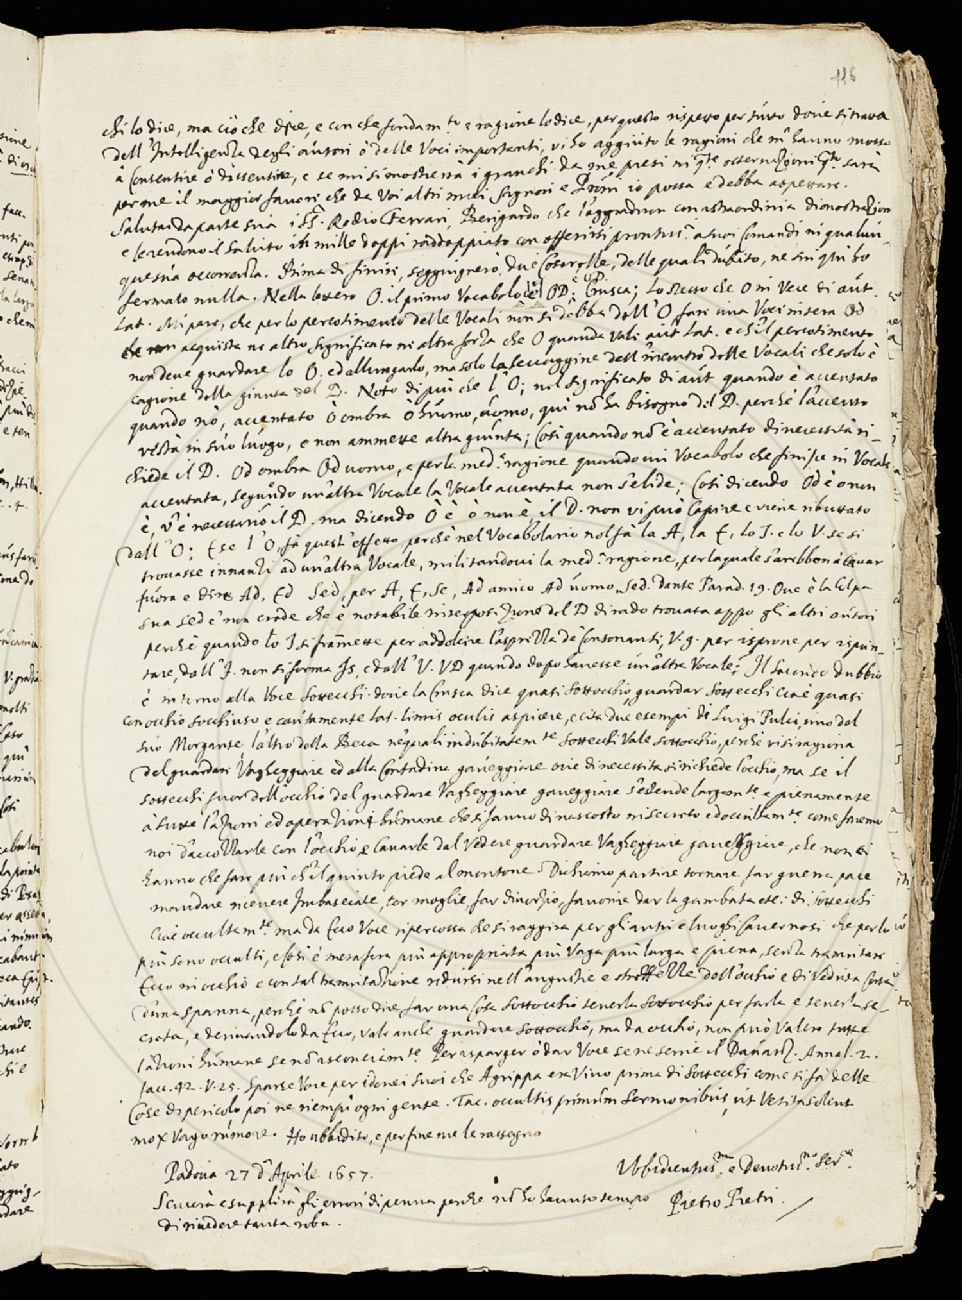 116
chi lo dice, ma ciò che dice, e con che fondam.to e ragione lo dice, per questo rispetto per tutto dove si trava
dell'Intelligenza degli autori ò delle Voci importanti, vi ho aggiunto le ragioni che m'hanno mosso
à Consentire ò dissentire, e se mi si mostrerà i granchi da me presi in q.te osservazioni q.to sarà
per me il maggior favore che da Voi altri miei Signori e Pròni io possa e debba aspettare.
Saluta da parte sua i SS.ri Rodio Ferrari, Berigardo che l'aggradiron con astraordinia dimostrazion
e le rendono il saluto in mille doppi raddoppiato con offerirsi prontiss.i a suoi Comandi in qualun-
questua occorrenza. Prima di finire, soggiugnerò due Coserelle, delle quali dubito, ne sin quì ho
fermato nulla. Nella lettera O. il primo Vocabolo è OD; e Crusca; lo stesso che O in Vece di aut.
Lat. Mi pare, che per lo percotimento delle Vocali non si debba dall'O fare una Voce intera Od
che non acquista ne altro significato ne altra forza che O quando vale aut Lat. e ch'il percotimento
non deve guardare lo O. ed allungarlo, ma solo la seccaggine dell'incontro delle Vocali che solo è
cagione della giunta del D. Noto di più che l'O; nel significato di aut quando è accentato
quando nò, accentato Ò ombra ò huomo, uomo, qui nō ha bisogno del D. perché l'accento
resta in suo luogo, e non ammette altra giunta; Così quando nō è accentato di necessità ri-
chiede il D. Od ombra Od uomo, e per la med.a ragione quando un Vocabolo che finisce in Vocale
accentata, seguendo un'altra Vocale la Vocale accentata non s'elide; Così dicendo Od è o non
è, v'è necessario il D. ma dicendo Ò è ò non è il D. non vi può Capire e viene ributtato
dall'O; E se l'O fà quest'effetto, perchè nel Vocabolario nol fà la A, la E, lo I. e lo V. se si
trovasse innanzi ad un'altra Vocale, militandovi la med.a ragione, per la quale s'arebbon à Cavar
fuora e dire Ad, Ed Sed, per A, E, Se, Ad amico Ad uomo, Sed. Dante Parad. 19. Ove è la Colpa
sua sed è non crede che è notabile interposizione del D di rado trovata appo gli altri autori
perchè quando lo I si framette per addolcire l'asprezza de Consonanti, V.g. per ispione per ispun-
tare, dall'I. non si forma Is, e dall'V. VD quando dopo havesse un'altra Vocale; Il secondo dubbio
è intorno alla Voce Sottecchi. dove la Crusca dice quasi Sottocchio, guardar Sottecchi cioè quasi
con occhio socchiuso e cautamente Lat. limis oculis aspicere, e cita due esempi di Luigi Pulci, uno del
suo Morgante, l'altro della Beca ne quali indubitatem.te Sottecchi Vale sottocchio, perchè vi si ragiona
del guardare Vagheggiare ed alla Contadina gaveggiare ove di necessità si richiede l'occhio, ma se il
sottecchi fuor dell'occhio del guardare Vagheggiare gaveggiare s'estende largam.te e pienamente
à tutte l'azioni ed operazioni humane che si fanno di nascosto in secreto ed occultam.te come faremo
noi d'accozzarle con l'occhio, e Cavarle dal Vedere guardare Vagheggiare gaveggiare, che non ci
hanno che fare più ch'il quinto piede al montone. Dichiamo partire tornare far guerra pace
mandare ricevere Imbasciate, tor moglie far divorzio, favorire dar la gambata etc: di Sottecchi
cioè occultam.te ma da Ecco Voce ripercossa che si raggira per gli antri e luoghi Cavernosi che per lo
più sono occulti, e così è metafora più appropriata più Vaga più larga e piena, senza tramutare
Ecco in occhio e con tal tramutazione ridursi nell'angustie e strettezze dell'occhio e di Veduta Corta
d'una spanna, perchè nō posso dire far una Cosa Sottocchio tenerla Sottocchio per farla e tenerla se-
creta, e derivandolo da Ecco, vale anche guardare sottocchio, ma da occhio, non può Valere tutte
l'azioni humane se nō sconciam.te. Per isparger ò dar Voce se ne servì il Davanz. Annal. 2.
facc. 42. V. 25. Sparse Voce per idonei suoi che Agrippa era Vivo prima di Sottecchi come si fà delle
Cose di pericolo poi ne riempì ogni gente. Tac. occultis primùm Sermonibus, ut Vetita solent
mox Vago rumore. Ho ubbidito, e per fine me le rassegno
Padova 27 d'Aprile 1657.
Ubbidientiss.mo e Devotiss.mo Ser.re
Scuserà e supplirà gli errori di penna perche nō ho havuto tempo
Pietro Pietri.
di rivedere tanta roba.